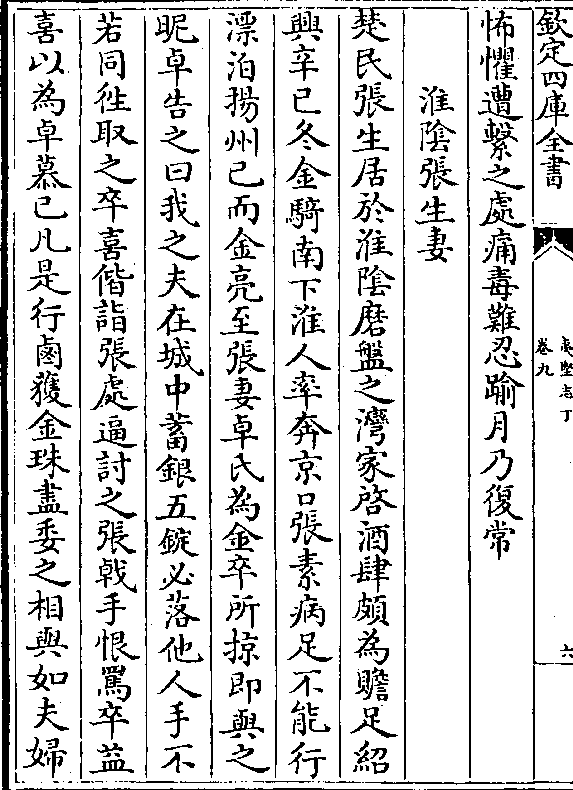 欽定四庫全書
夷堅志丁
卷九
六
怖懼遭繫之處痛毒難忍踰月乃復常
淮陰張生妻
楚民張生居於淮陰磨盤之灣家啓酒肆頗為贍足紹
興辛已冬金騎南下淮人率奔京口張素病足不能行
漂泊揚州已而金亮至張妻卓氏為金卒所掠即與之
昵卓告之曰我之夫在城中蓄銀五錠必落他人手不
若同徃取之卒喜偕詣張處逼討之張戟手恨罵卒益
喜以為卓慕已凡是行鹵獲金珠盡委之相與如夫婦